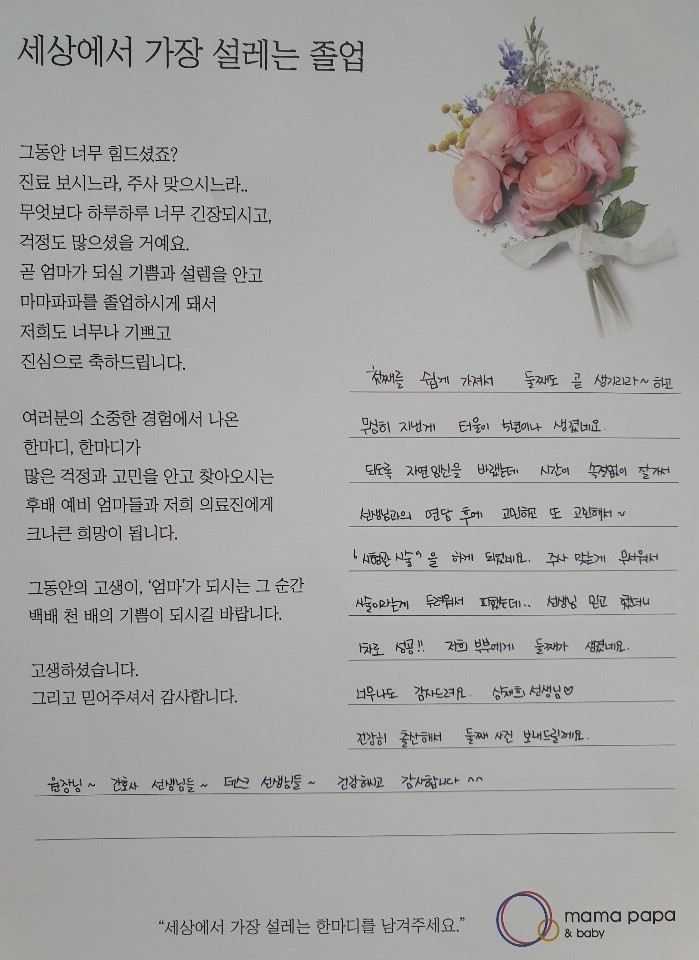 세상에서 가장 설레는 졸업
그동안 너무 힘드셨죠?
진료 보시느라, 주사 맞으시느라..
무엇보다 하루하루 너무 긴장되시고,
걱정도 많으셨을 거예요.
곧 엄마가 되실 기쁨과 설렘을 안고
마마파파를 졸업하시게 돼서
저희도 너무나 기쁘고
진심으로 축하드립니다.
여러분의 소중한 경험에서 나온
한마디, 한마디가
많은 걱정과 고민을 안고 찾아오시는
후배 예비 엄마들과 저희 의료진에게
크나큰 희망이 됩니다.
그동안의 고생이, ‘엄마’가 되시는 그 순간
백배 천 배의 기쁨이 되시길 바랍니다.
고생하셨습니다.
그리고 믿어주셔서 감사합니다.
첫째를 쉽게 가져서 둘째도 곧 생기리라~ 하고
무심히 지낸게 터울이 5년이나 생겼네요.
되도록 자연임신을 바랬는데 시간이 속절없이 잘가서
선생님과의 면담 후에 고민하고 또 고민해서~
'시험관 시술'을 하게 되었네요. 주사 맞는게 무서워서
시술이라는게 두려워서 피했는데.. 선생님 믿고 했더니
1차로 성공!! 저희 부부에게 둘째가 생겼네요.
너무나도 감사드려요. 상재희 선생님♡
건강히 출산해서 둘째 사진 보내드릴게요.
원장님~ 간호사 선생님들~ 데스크 선생님들~ 건강하시고 감사합니다 ^^
“세상에서 가장 설레는 한마디를 남겨주세요.”
mama papa
& baby